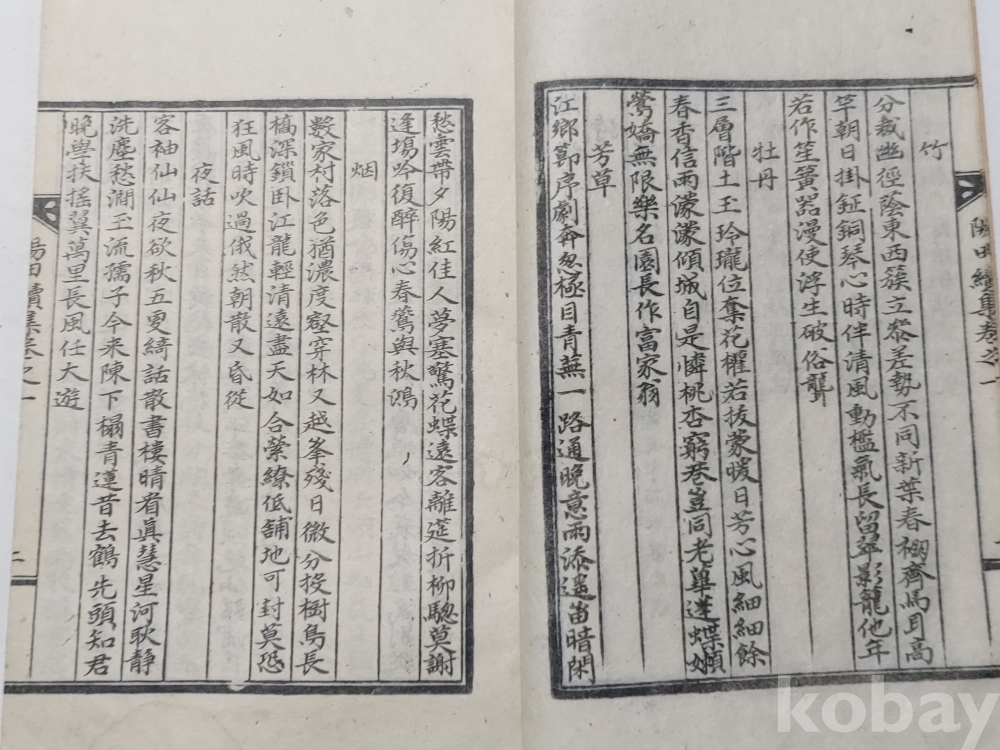 竹
分裁幽徑蔭東西簇立叅差勢不同新葉春棚齊馬耳高
竿朝日掛鉦銅琴心時伴清風動檻氣長留翠影籠他年
若作笙簧器漫使浮生破俗聾
牡丹
三層階土玉玲瓏位奪花欋若拔蒙暖日芳心風細細餘
春香信雨濛濛傾城自是憐桃杏窮巷豈同老華迷蝶
鶯嬌無限樂名園長作富家翁
芳草
江鄉節序劇奔忽極目青蕪一路通晩意雨添遥笛暗閑
愁雲帶夕陽紅佳人夢塞驚花蝶遠客離筵折柳驄莫謝
逢場吟復醉傷心春鶯與秋鴻
烟
數家村落色猶濃度壑穿林又越峯殘日微分投樹鳥長
橋深鎖卧江龍輕清遠盡天如合縈繚低舖地可封莫恐
狂風時吹過俄然朝散又昏從
夜話
客袖仙仙夜欲秋五更綺話散書樓晴看眞慧星河耿静
洗塵愁澗玉流孺子今来陳下榻青蓮昔去鶴先頭知君
晩學扶搖翼萬里長風任大遊
陽田續集卷之一
二
陽田續集卷之一
kobay